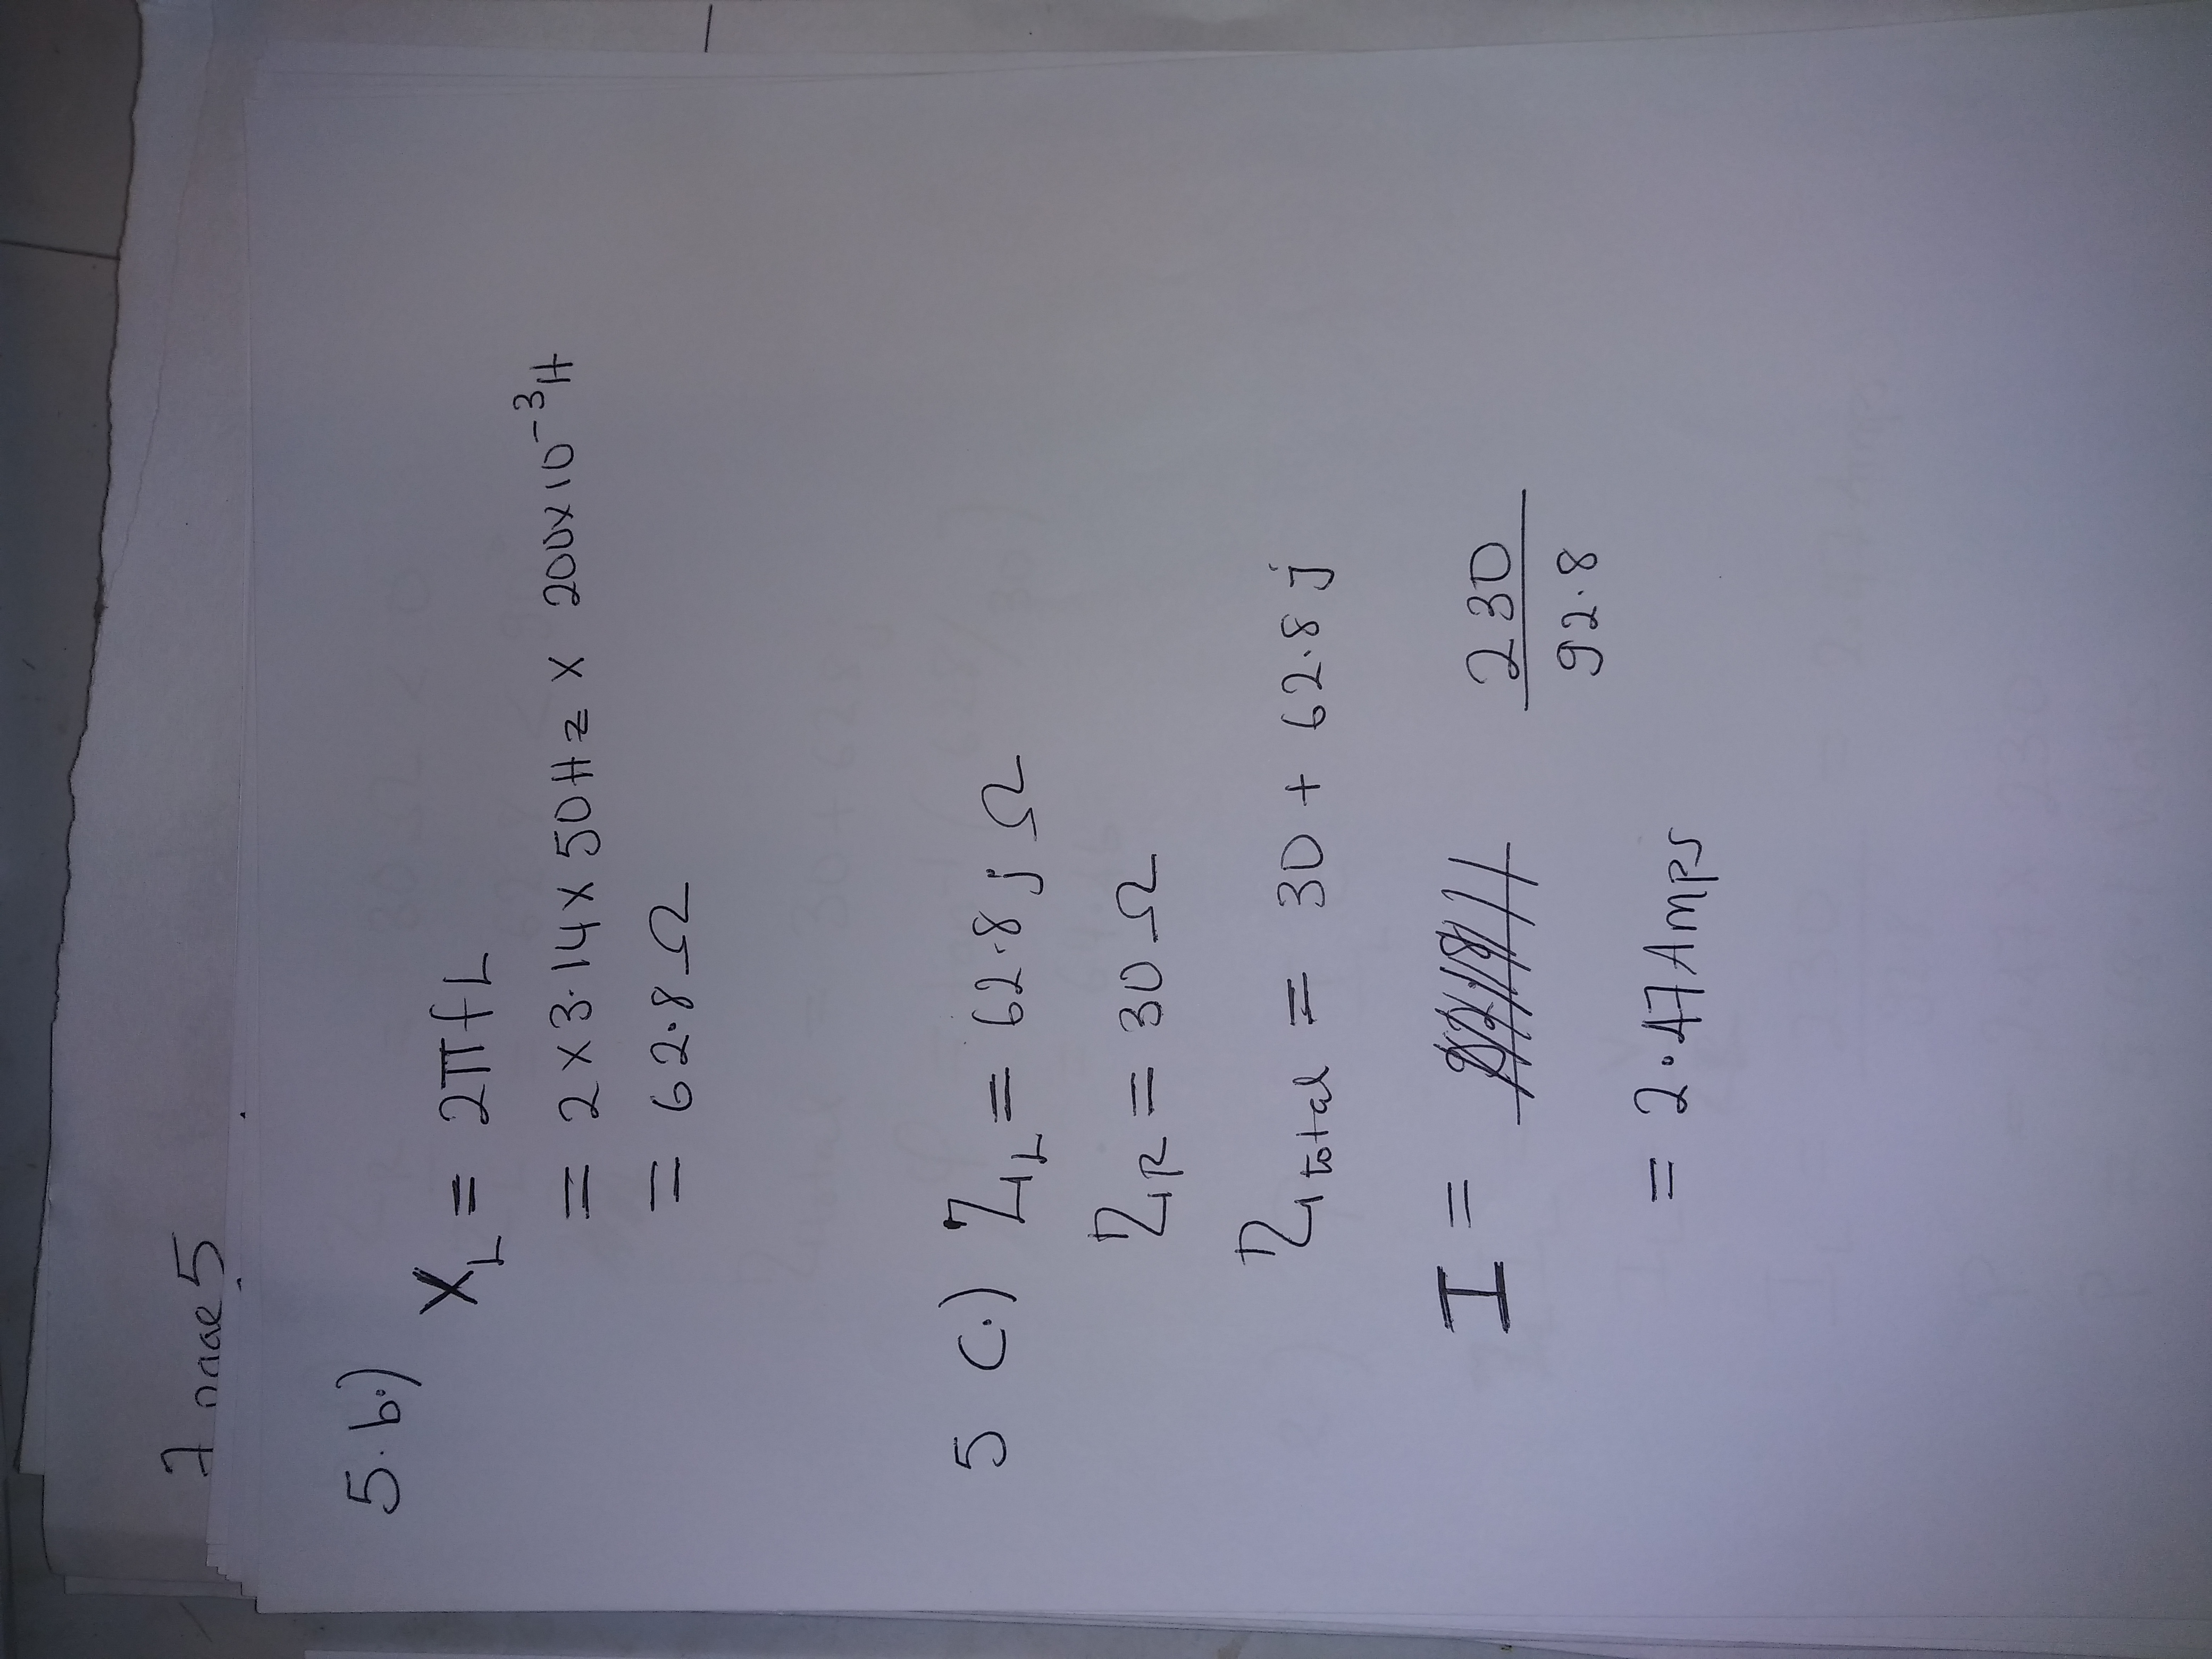 7 page 5
5. b.)
X_L = 2πfL
= 2 x 3.14 x 50Hz x 200x10⁻³H
= 62.8 Ω
5 c.) Z_L = 62.8 j Ω
Z_R = 30 Ω
Z_total = 30 + 62.8 j
I = 230 / 92.8
= 2.47 Amps